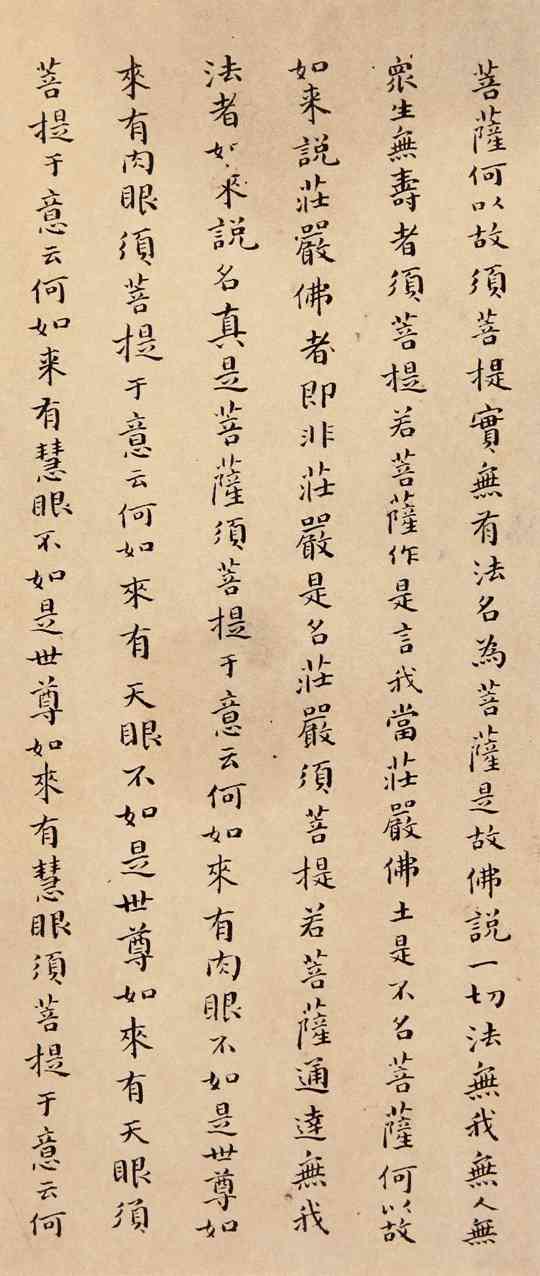 菩薩何以故須菩提實無有法名為菩薩是故佛說一切法無我無人無
衆生無壽者須菩提若菩薩作是言我當莊嚴佛土是不名菩薩何以故
如来說莊嚴佛者即非莊嚴是名莊嚴須菩提若菩薩通達無我
法者如來說名真是菩薩須菩提于意云何如來有肉眼不如是世尊如
來有肉眼須菩提于意云何如來有天眼不如是世尊如來有天眼須
菩提于意云何如来有慧眼不如是世尊如來有慧眼須菩提于意云何